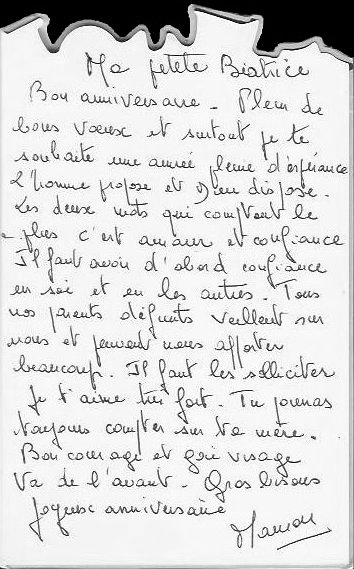 Ma petite Béatrice
Bon anniversaire - Plein de
bons vœux et surtout je te
souhaite une année pleine d'espérance
L'homme propose et Dieu dispose.
Les deux mots qui comptent le
plus c'est amour et confiance
Il faut avoir d'abord confiance
en soi et en les autres. Tous
nos parents défunts veillent sur
nous et peuvent nous apporter
beaucoup. Il faut les solliciter
Je t'aime très fort. Tu pourras
toujours compter sur ta mère.
Bon courage et gai visage
Va de l'avant - Gros bisous
Joyeux anniversaire
Maman